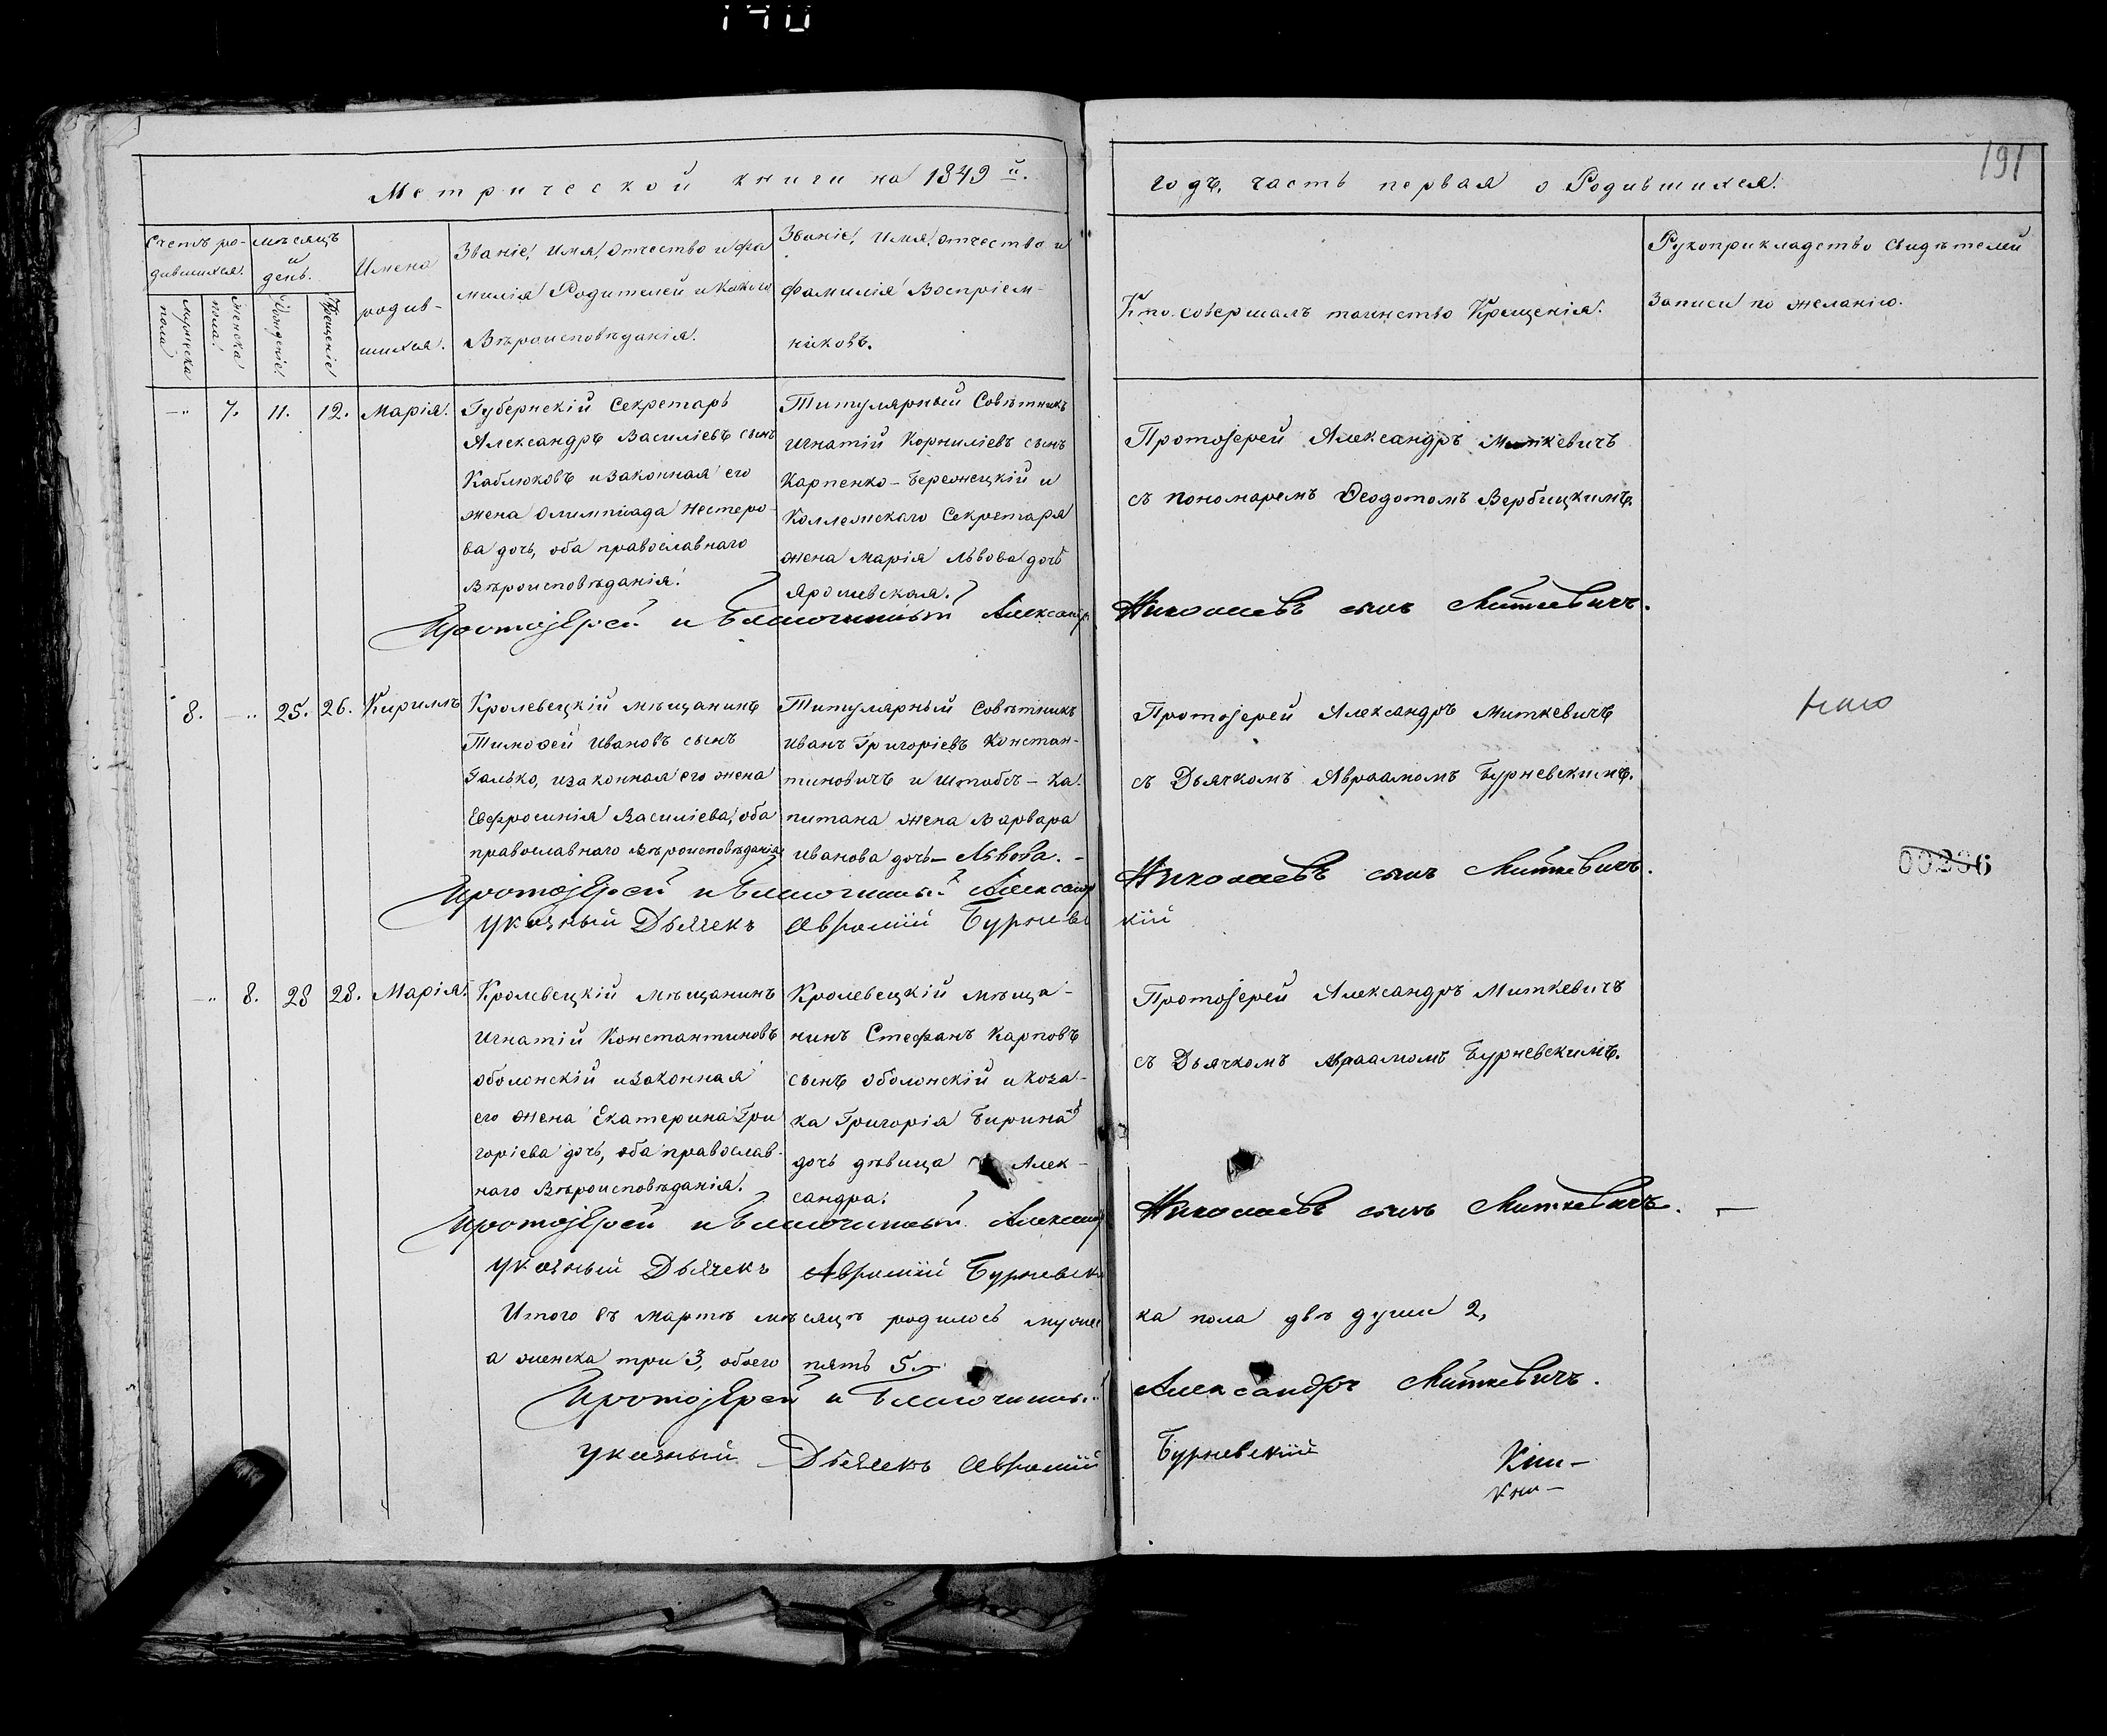 191
Метрической книги на 1849 й.
годъ, часть первая о Родившихся.
Счетъ ро-
дившихся.
мужеска
пола
женска
пола.
мѣсяцъ
и
день.
Рожденіе.
Крещеніе
Имена
родив-
шихся.
Званіе, Имя, Отчество и фа
милія Родителей и какого
Вѣроисповѣданія.
Званіе, Имя, Отчество и
фамилія Воспріем-
никовъ.
Кто совершалъ таинство Крещенія.
Рукоприкладство свидѣтелей
записи по желанію.
—" 7. 11. 12. Марія.
Губернскій Секретарь
Александръ Василіевъ сынъ
Каблюковъ и законная его
жена Олимпіада Нестеро-
ва дочь, оба православнаго
Вѣроисповѣданія.
Титулярный Совѣтникъ
Игнатій Корниліевъ сынъ
Карпенко-Бережецкій и
Коллежскаго Секретаря
жена Марія Львова дочь
Ярошевская.
Протоіерей Александръ Миткевичъ
съ пономаремъ Ѳеодотомъ Вербицкимъ.
Протоіерей и Благочинный Александръ Николаевъ сынъ Миткевичъ.
8. —" 25. 26. Кириллъ
Кролевецкій мѣщанинъ
Тимоѳей Ивановъ сынъ
Галько, и законная его жена
Евфросинія Василіева, оба
православнаго Вѣроисповѣданія
Титулярный Совѣтникъ
Иванъ Григоріевъ Констан-
тиновичъ и штабсъ-ка-
питана жена Варвара
Иванова дочь — Львова. -
Протоіерей Александръ Миткевичъ
съ Дьячкомъ Авраамомъ Бурневскимъ.
00296
Протоіерей и Благочинный Александръ Николаевъ сынъ Миткевичъ.
Указный Дьячекъ Аврамій Бурневскій
—" 8. 28 28. Марія.
Кролевецкій мѣщанинъ
Игнатій Константиновъ
Оболонскій и законная
его жена Екатерина Гри
горіева дочь, оба православ-
наго Вѣроисповѣданія.
Кролевецкій мѣща-
нинъ Стефанъ Карповъ
сынъ Оболонскій и коза-
ка Григорія Бирина
дочь дѣвица Алек-
сандра.
Протоіерей Александръ Миткевичъ
съ Дьячкомъ Авраамомъ Бурневскимъ.
Протоіерей и Благочинный Александръ Николаевъ сынъ Миткевичъ. —
Указный Дьячекъ Аврамій Бурневск
Итого въ Мартѣ мѣсяцѣ родилось мужес ка пола двѣ души 2,
а женска три 3, обоего пять 5.
Протоіерей и Благочинный Александръ Миткевичъ.
Указный Дьячекъ Аврамій Бурневскій